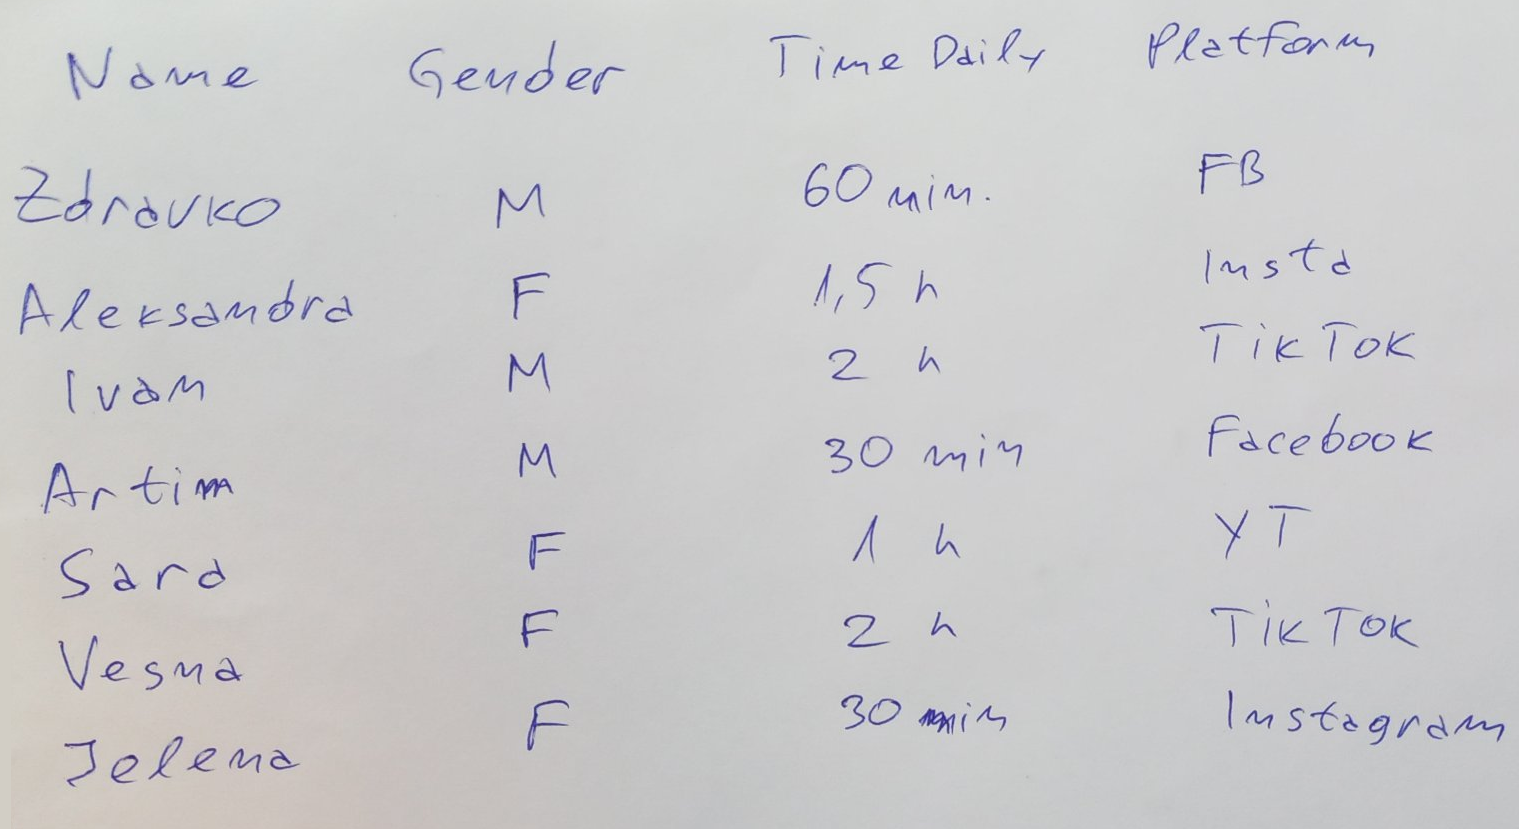 Name Gender Time Daily Platform
Zdravko M 60 min. FB
Aleksandra F 1,5 h Insta
Ivan M 2 h TikTok
Artim M 30 min Facebook
Sara F 1 h YT
Vesna F 2 h TikTok
Jelena F 30 min Instagram